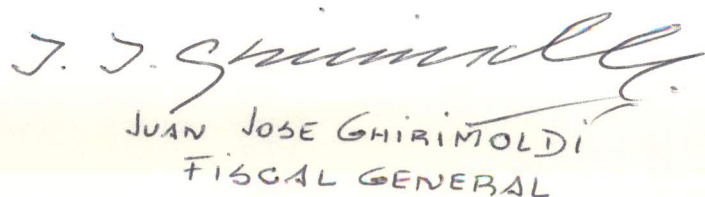 J. J. Ghirimoldi.
JUAN JOSE GHIRIMOLDI
FISCAL GENERAL